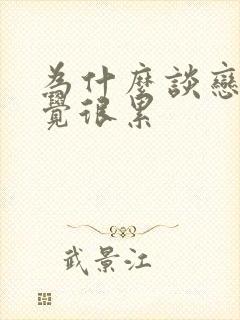 為什麼談戀
覺很累
武景江